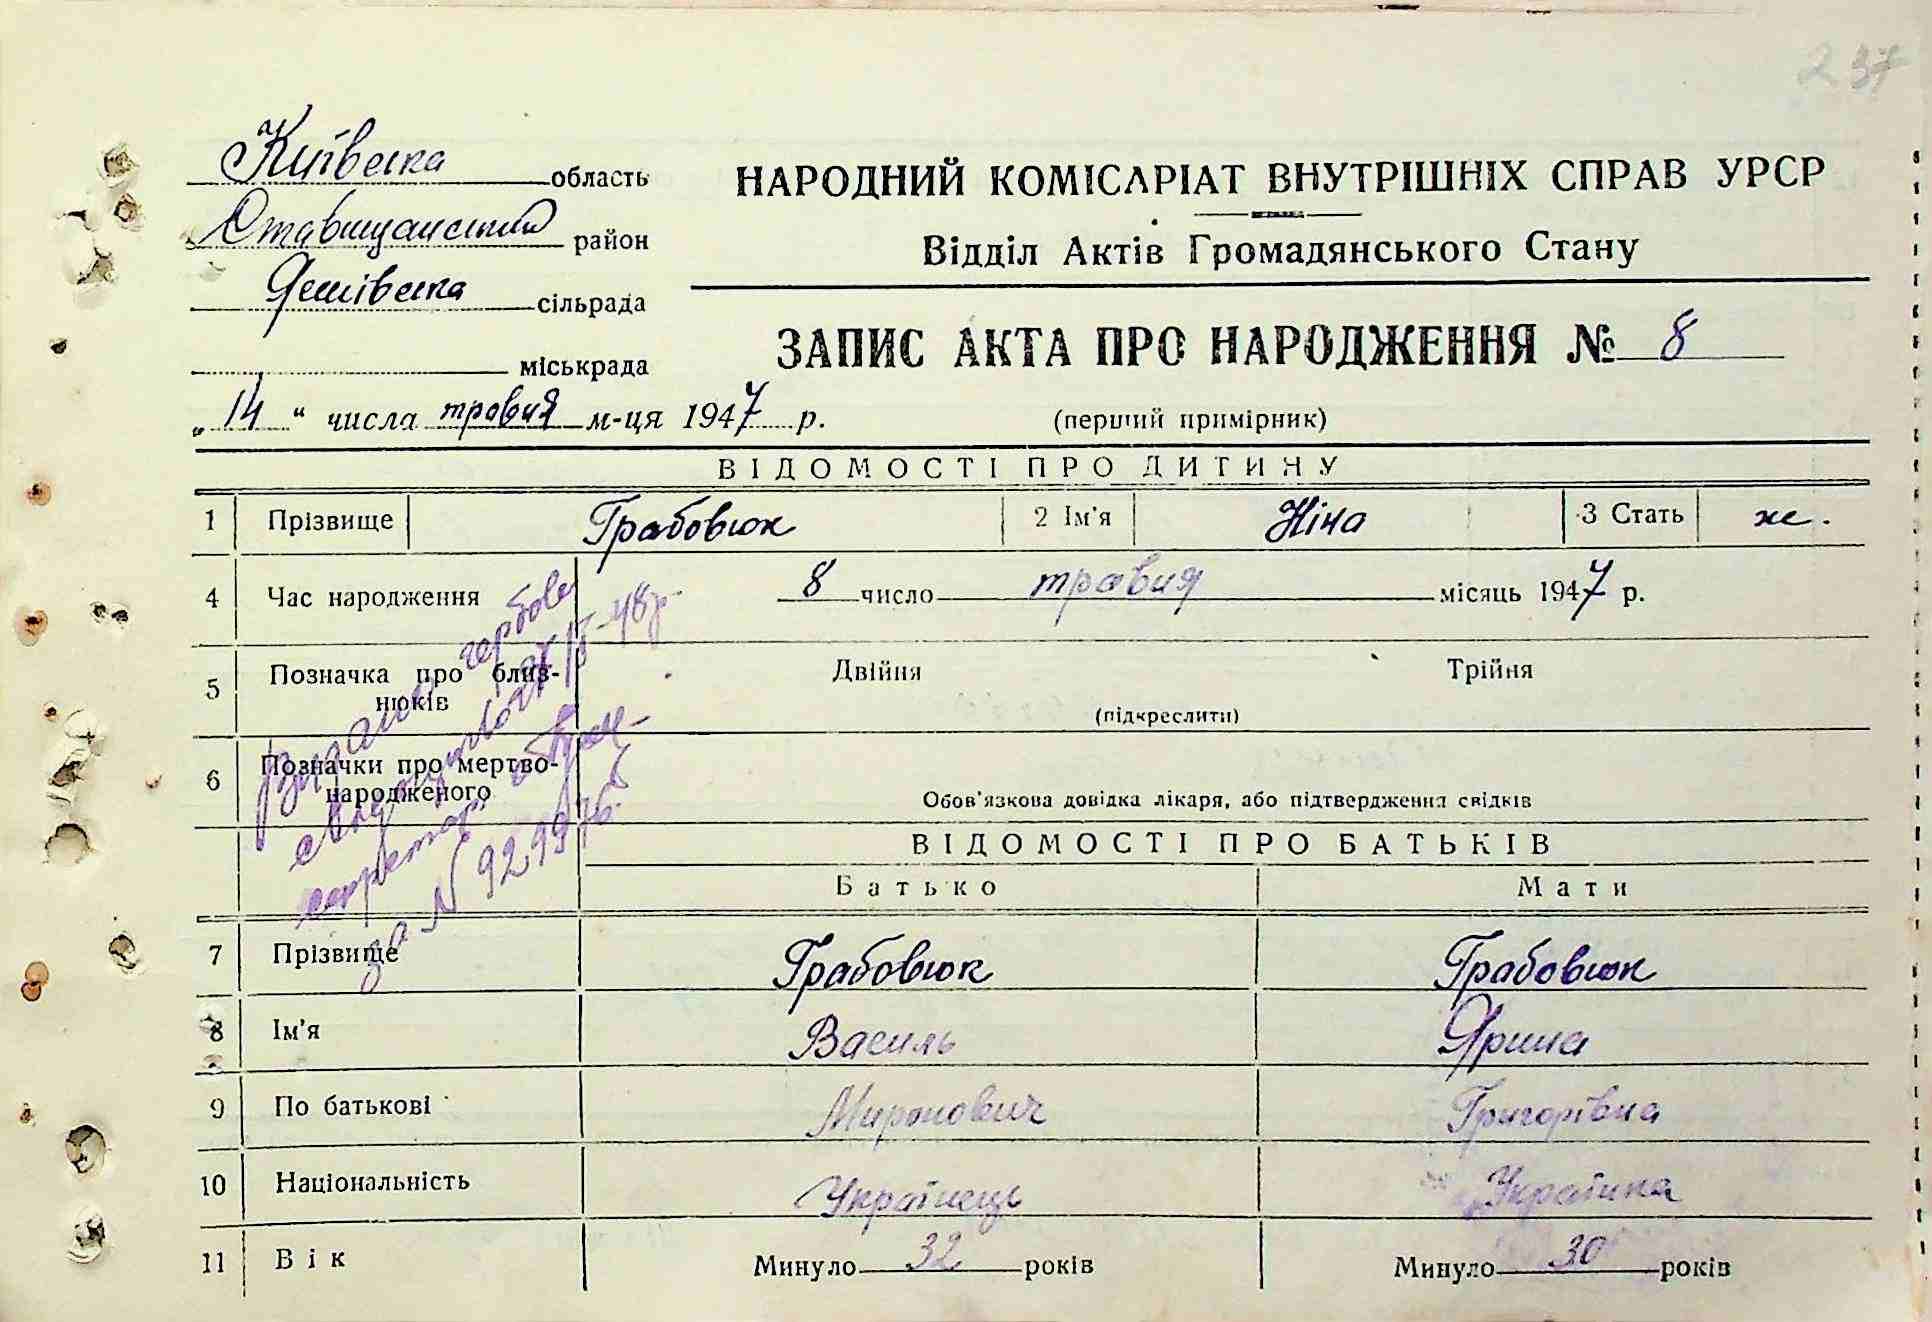 237
Київська область
Ставищанський район
Яшівська сільрада
міськрада
„14“ числа травня м-ця 1947 р.
НАРОДНИЙ КОМІСАРІАТ ВНУТРІШНІХ СПРАВ УРСР
Відділ Актів Громадянського Стану
ЗАПИС АКТА ПРО НАРОДЖЕННЯ № 8
(перший примірник)
ВІДОМОСТІ ПРО ДИТИНУ
1 Прізвище Грабовюк 2 Ім'я Ніна 3 Стать ж.
4 Час народження 8 число травня місяць 1947 р.
5 Позначка про близнюків Двійня Трійня
(підкреслити)
6 Позначки про мертвонародженого
Обов'язкова довідка лікаря, або підтвердження свідків
гербове
48р.
за N
ВІДОМОСТІ ПРО БАТЬКІВ
Батько Мати
7 Прізвище Грабовюк Грабовюк
8 Ім'я Василь Ярина
9 По батькові Миронович Григорівна
10 Національність Українець Українка
11 Вік Минуло 32 років Минуло 30 років